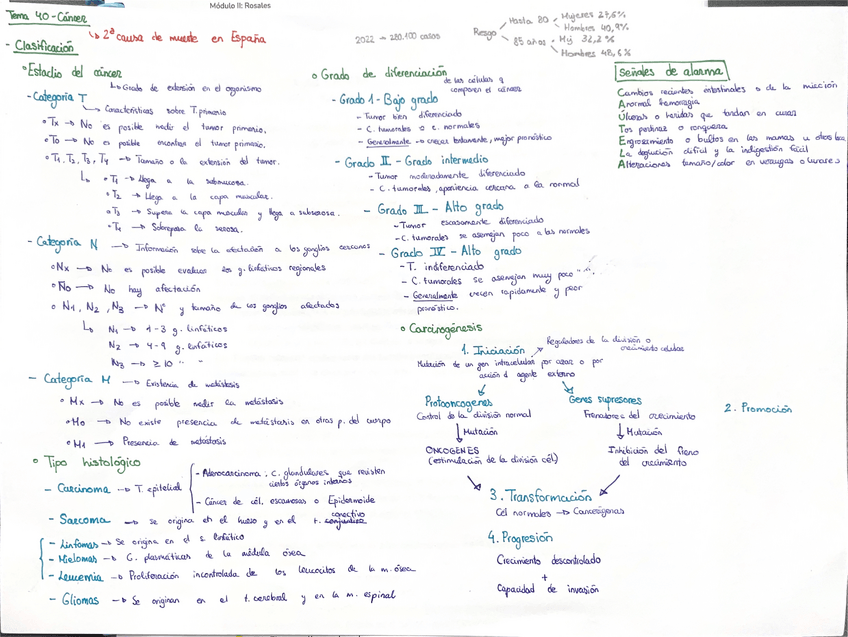 Módulo II: Rosales
Tema 40 - Cáncer
↳ 2ª causa de muerte en España
2022 → 280.100 casos
Riesgo
Hasta 80
Mujeres 27,6%
Hombres 40,9%
85 años
Mj 32,2%
Hombres 48,6%
- Clasificación
• Estadio del cáncer
↳ Grado de extensión en el organismo
- Categoría T
↳ Características sobre T. primario
• Tx → No es posible medir el tumor primario.
• T0 → No es posible encontrar el tumor primario.
• T1, T2, T3, T4 → Tamaño o la extensión del tumor.
↳ • T1 → Llega a la submucosa.
• T2 → Llega a la capa muscular.
• T3 → Supera la capa muscular y llega a subserosa.
• T4 → Sobrepasa la serosa.
- Categoría N → Información sobre la afectación a los ganglios cercanos
• Nx → No es posible evaluar los g. linfáticos regionales
• N0 → No hay afectación
• N1, N2, N3 → Nº y tamaño de los ganglios afectados
↳ N1 → 1-3 g. linfáticos
N2 → 4-9 g. linfáticos
N3 → ≥10 " "
- Categoría M → Existencia de metástasis
• Mx → No es posible medir la metástasis
• M0 → No existe presencia de metástasis en otras p. del cuerpo
• M1 → Presencia de metástasis
• Tipo histológico
- Carcinoma → T. epitelial
- Adenocarcinoma: c. glandulares que revisten
ciertos órganos internos
- Cáncer de cél. escamosas o Epidermoide
- Sarcoma → Se origina en el hueso y en el t. conjuntivo
conectivo
- Linfomas → Se origina en el s. linfático
- Mielomas → C. plasmáticas de la médula ósea
- Leucemia → Proliferación incontrolada de los leucocitos de la m. ósea
- Gliomas → Se originan en el t. cerebral y en la m. espinal
• Grado de diferenciación
de las células q
componen el cáncer
- Grado 1 - Bajo grado
- Tumor bien diferenciado
- C. tumorales ≃ c. normales
- Generalmente → crecer lentamente, mejor pronóstico
- Grado II - Grado intermedio
- Tumor moderadamente diferenciado
- C. tumorales, apariencia cercana a la normal
- Grado III - Alto grado
- Tumor escasamente diferenciado
- C. tumorales se asemejan poco a las normales
- Grado IV - Alto grado
- T. indiferenciado
- C. tumorales se asemejan muy poco " "
- Generalmente crecen rápidamente y peor
pronóstico.
• Carcinogénesis
1. Iniciación
Reguladores de la división o
crecimiento celular
Mutación de un gen intracelular por azar o por
acción d agente externo
Protooncogenes
Control de la división normal
↓ Mutación
ONCOGENES
(estimulación de la división cél)
Genes supresores
Frenadores del crecimiento
↓ Mutación
Inhibición del freno
del crecimiento
2. Promoción
3. Transformación
Cél normales → Cancerígenas
4. Progresión
Crecimiento descontrolado
+
Capacidad de invasión
Señales de alarma
Cambios recientes intestinales o de la micción
Anormal hemorragia
Úlceras o heridas que tardan en curar
Tos pertinaz o ronquera
Engrosamiento o bultos en las mamas u otros loc
La deglución difícil y la indigestión fácil
Alteraciones tamaño/color en verrugas o lunares